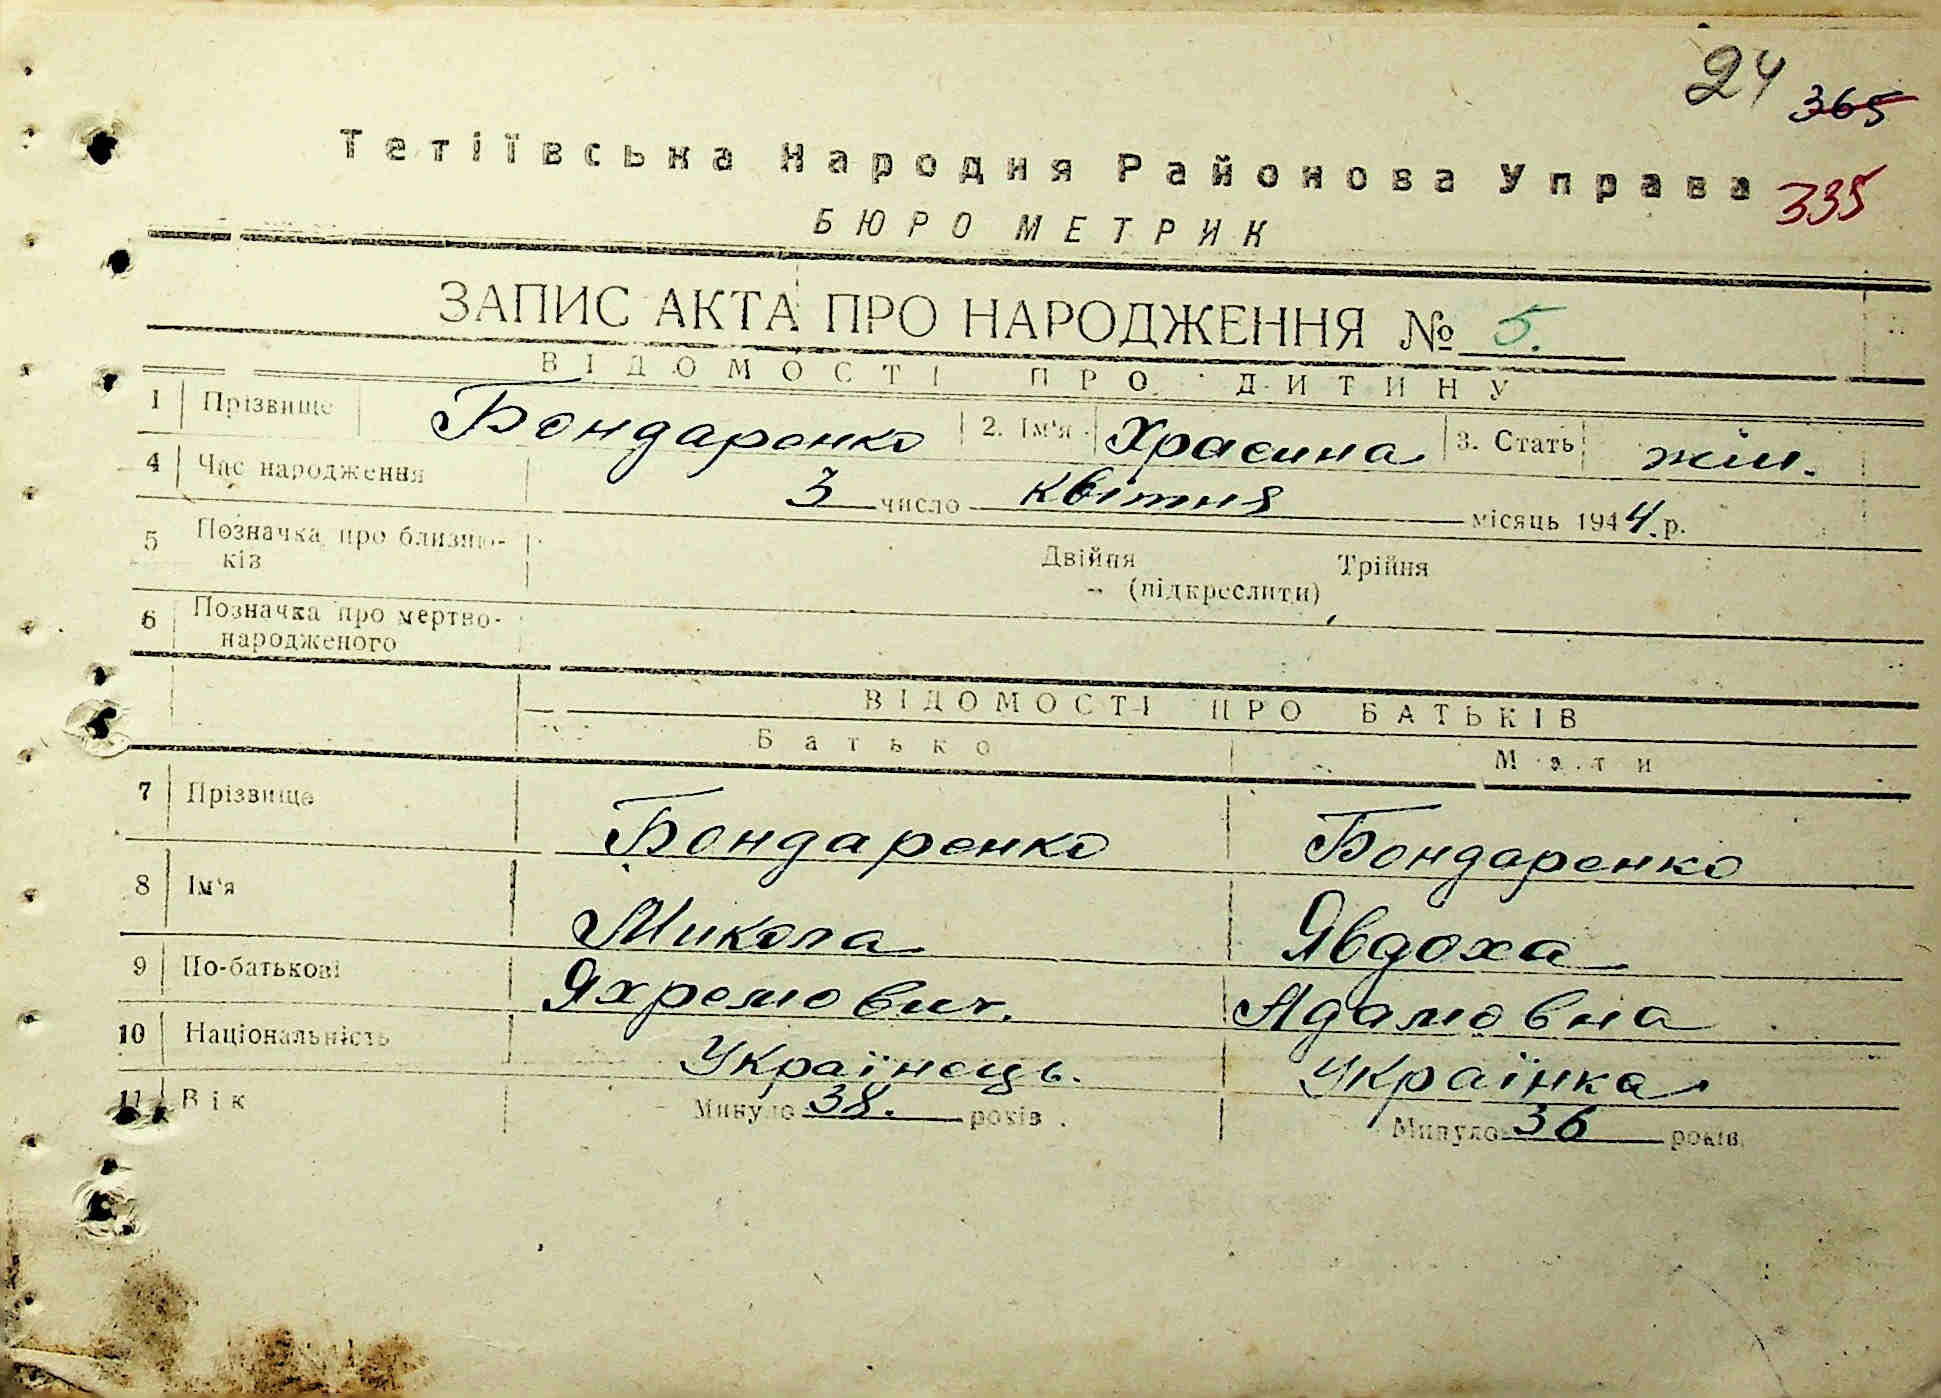 24 365
Тетіївська Народня Районова Управа 335
БЮРО МЕТРИК
ЗАПИС АКТА ПРО НАРОДЖЕННЯ № 5.
ВІДОМОСТІ ПРО ДИТИНУ
1 Прізвище Бондаренко 2. Ім'я Храсина 3. Стать жін.
4 Час народження 3 число квітня місяць 1944.р.
5 Позначка про близню- Двійня Трійня
ків (підкреслити)
6 Позначка про мертво-
народженого
ВІДОМОСТІ ПРО БАТЬКІВ
Батько Мати
7 Прізвище Бондаренко Бондаренко
8 Ім'я Микола Явдоха
9 По-батькові Яхремович. Адамовна
10 Національність Українець. Українка
11 Вік Минуло 38. років. Минуло 36 років